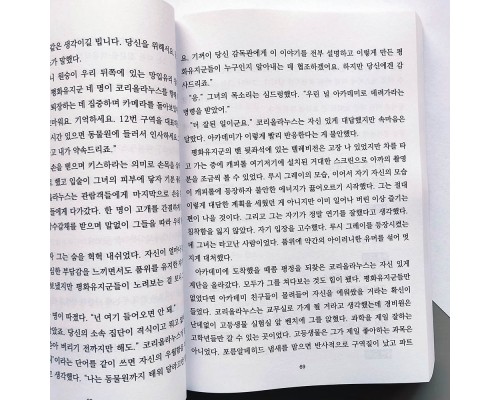 같은 생각이길 빕니다. 당신을 위해서요.
가 말했다.
니 원숭이 우리 뒤쪽에 있는 망일유리
평화유지군 네 명이 코리올라누스를
퇴장하는 데 집중하며 카메라를 돌아
마워요. 기억하세요. 12번 구역을 대표하
시간 있으면 동물원에 들러서 인사하세
내가 약속드리죠."
손을 내밀며 키스하라는 의미로 손목을
했고 입술이 그녀의 피부에 닿자 자
라누스는 관람객들에게 마지막으로 손을
들에게 다가갔다. 한 명이 고개를 간결하
수갑채를 받으며 말없이 그들을 따라 우
자 그는 숨을 헉헉 내쉬었다. 자신이 얼마나
심한 부담감을 느끼면서도 품위를 유지한
내뱉었지만 평화유지군들이 노려보는 걸 보
명이 따졌다. "넌 여기 들어오면 안 돼."
았죠. 당신의 소속 집단이 격식이고 뭐고
아 버리기 전까지만 해도." 코리올라누스가
"이라는 단어를 같이 쓰면 자신의 우월함
생각했다. "나는 동물원까지 태워 달라고
요. 기꺼이 당신 감독관에게 이 이야기를 전부 설명하고 이렇게 만든 평
화유지군들이 누구인지 알아내는 데 협조하겠어요. 하지만 당신에겐 감
사드리죠."
"응." 그녀의 목소리는 심드렁했다. "우린 널 아카데미로 데려가라는
명령을 받았어."
"더 잘된 일이군요." 코리올라누스는 자신 있게 대답했지만 속마음은
달랐다. 아카데미가 이렇게 빨리 반응한다는 게 불안했다.
평화유지군의 밴 뒷좌석에 있는 텔레비전은 고장 나 있었지만 차를 타
고 가는 중에 캐피톨 여기저기에 설치된 거대한 스크린으로 아까의 촬영
분을 조금씩 볼 수 있었다. 루시 그레이의 모습, 이어서 자기 자신의 모습
이 캐피톨에 등장하자 불안한 에너지가 끓어오르기 시작했다. 그는 절대
이렇게 대담한 계획을 세웠던 게 아니지만 이미 일어나 버린 이상 즐기는
편이 나을 것이다. 그리고 그는 자기가 정말 연기를 잘했다고 생각했다.
침착함을 잃지 않았다. 자기 입장을 고수했다. 루시 그레이를 등장시켰는
데 그녀는 타고난 사람이었다. 품위에 약간의 아이러니한 유머를 섞어 멋
지게 대처했다.
아카데미에 도착했을 때쯤 평정을 되찾은 코리올라누스는 자신 있게
계단을 올라갔다. 모두가 그를 쳐다보는 것도 힘이 됐다. 평화유지군들만
없었다면 아카데미 친구들이 몰려들어 자신을 에워쌌을 거라는 확신이
들었다. 코리올라누스는 교무실로 가게 될 거라고 생각했는데 경비원은
난데없이 고등생물 실험실 앞 벤치에 그를 앉혔다. 과학을 제일 잘하는
고학년들만 갈 수 있는 곳이었다. 고등생물은 그가 제일 좋아하는 과목은
아니었다. 포름알데히드 냄새를 맡으면 반사적으로 구역질이 났고 파트
69